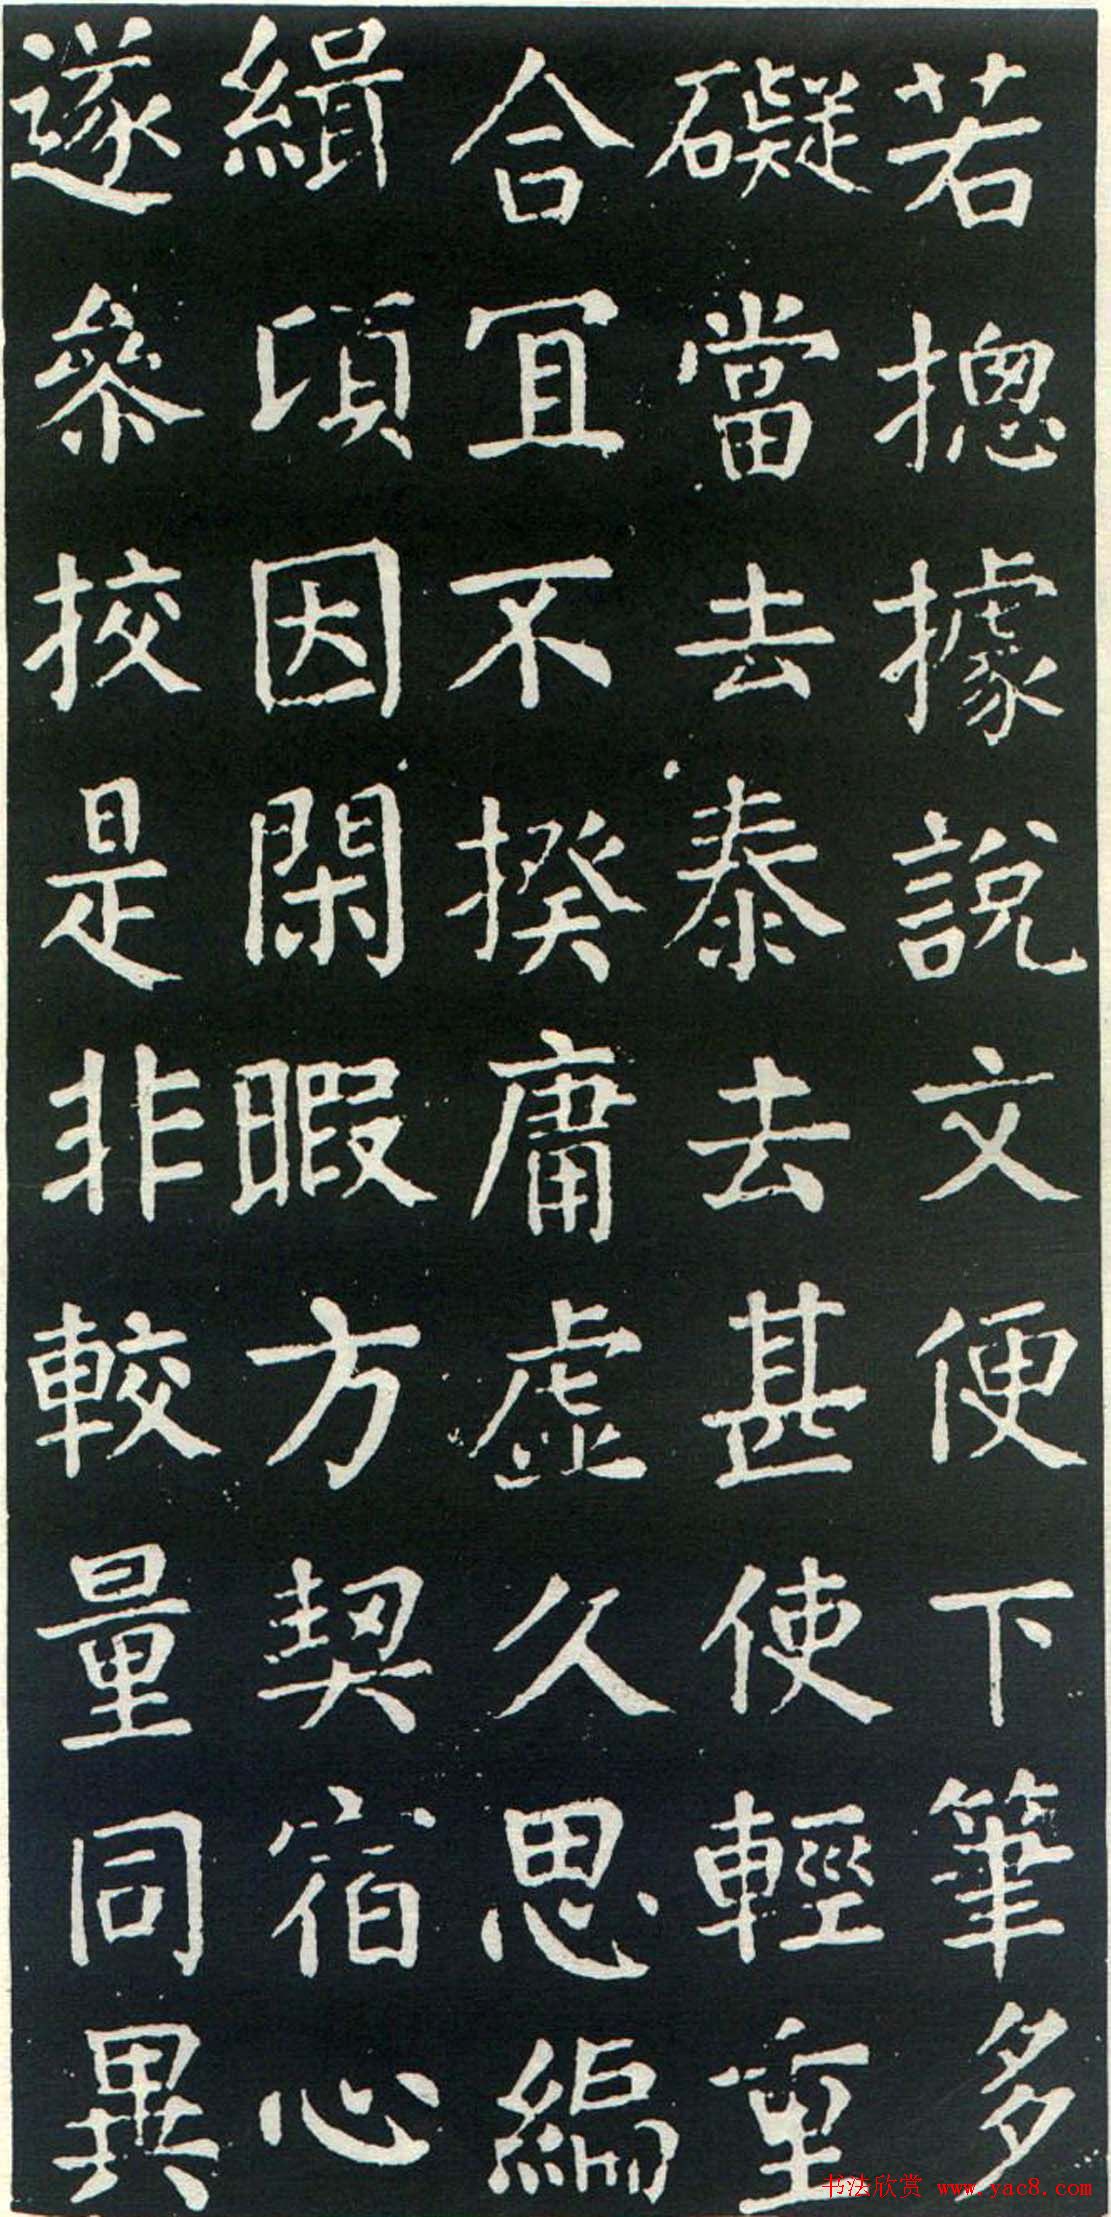 若揔據說文便下筆多
礙當去泰去甚使輕重
合冝不揆庸虛久思編
緝頃因閑暇方契宿心
遂叅挍是非較量同異
书法欣赏 www.yac8.com